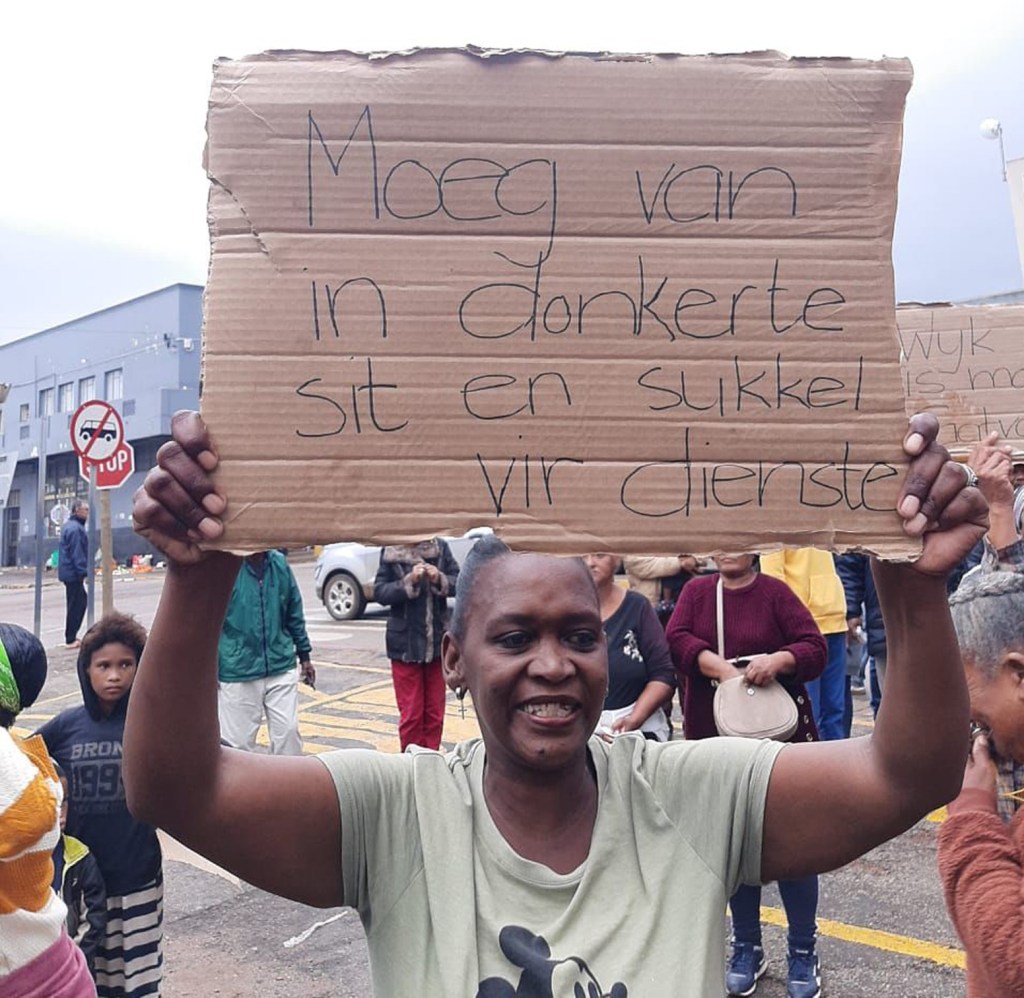 Moeg van
in donkerte
sit en sukkel
vir dienste
Wyk
STOP
BRON
199